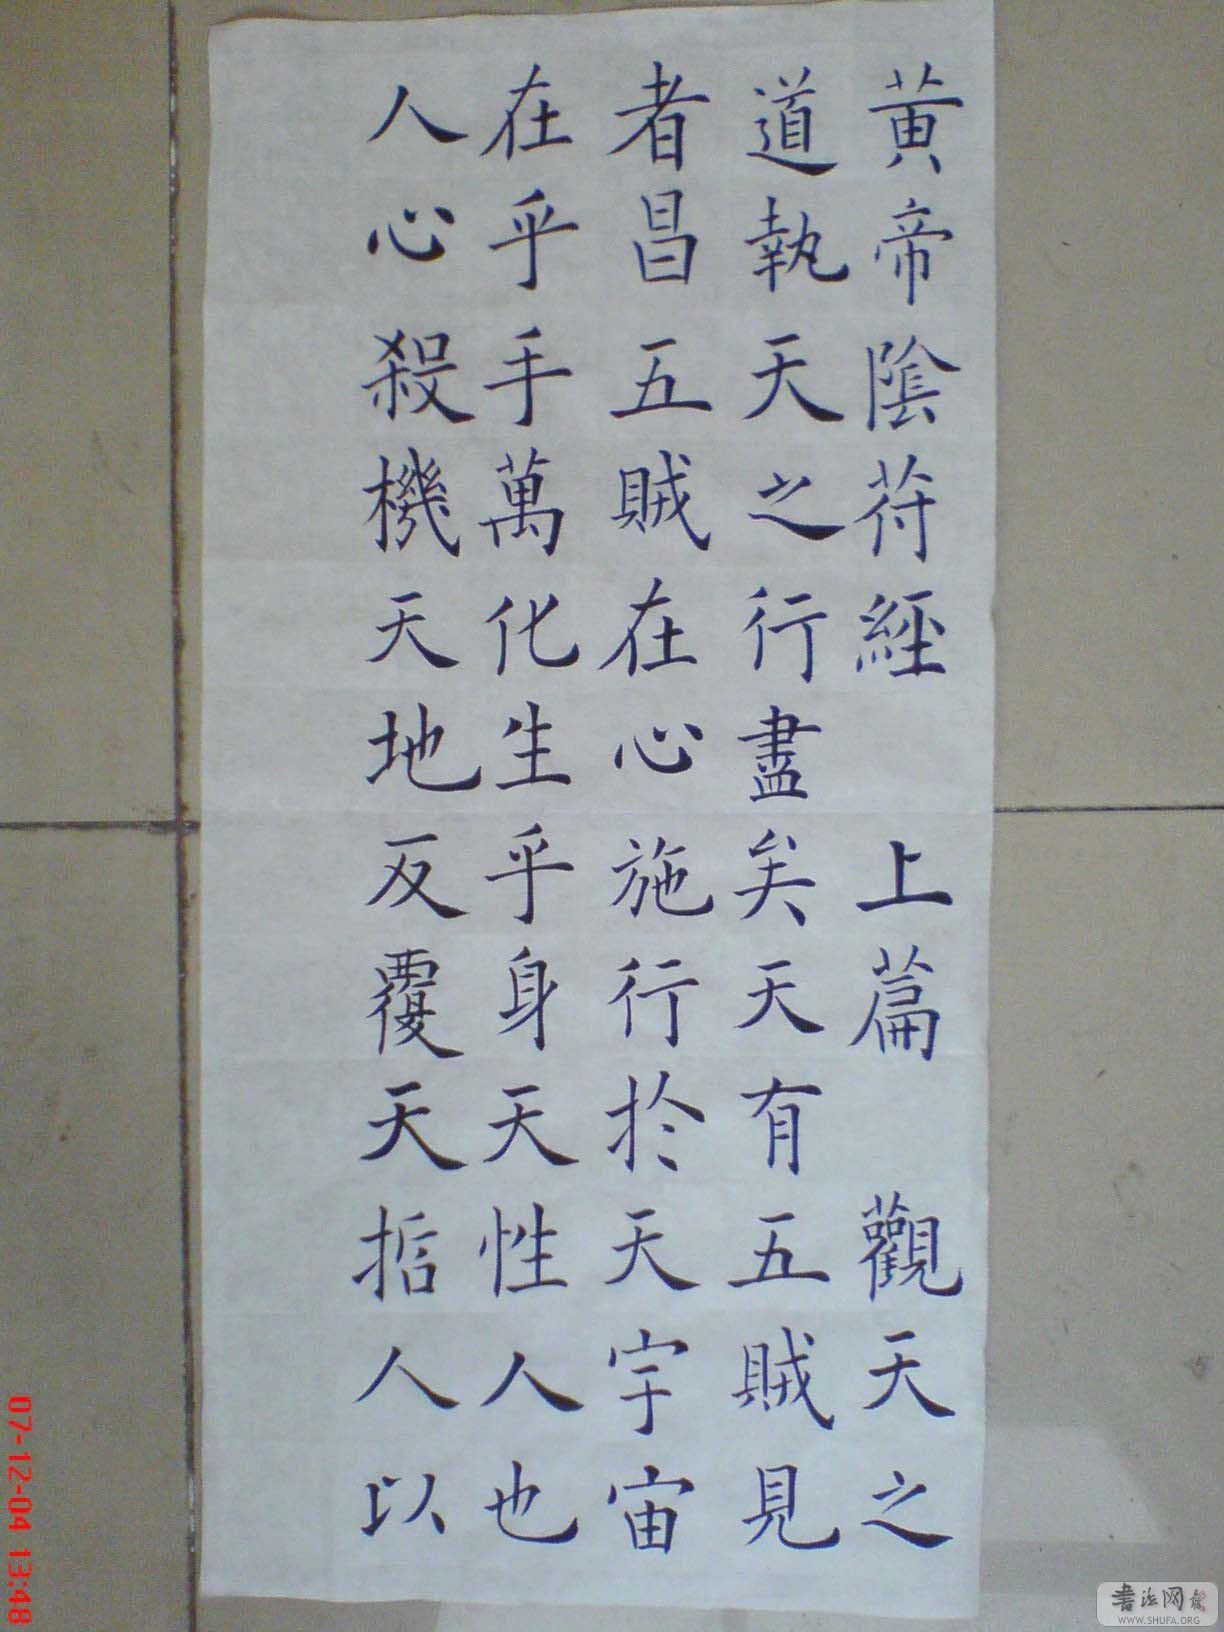 黄帝陰苻經 上篇 觀天之
道執天之行盡矣天有五賊見
者昌五賊在心施行於天宇宙
在乎手萬化生乎身天性人也
人心殺機天地反覆天括人以
07-12-04 13:48
書法网
WWW.SHUFA.ORG